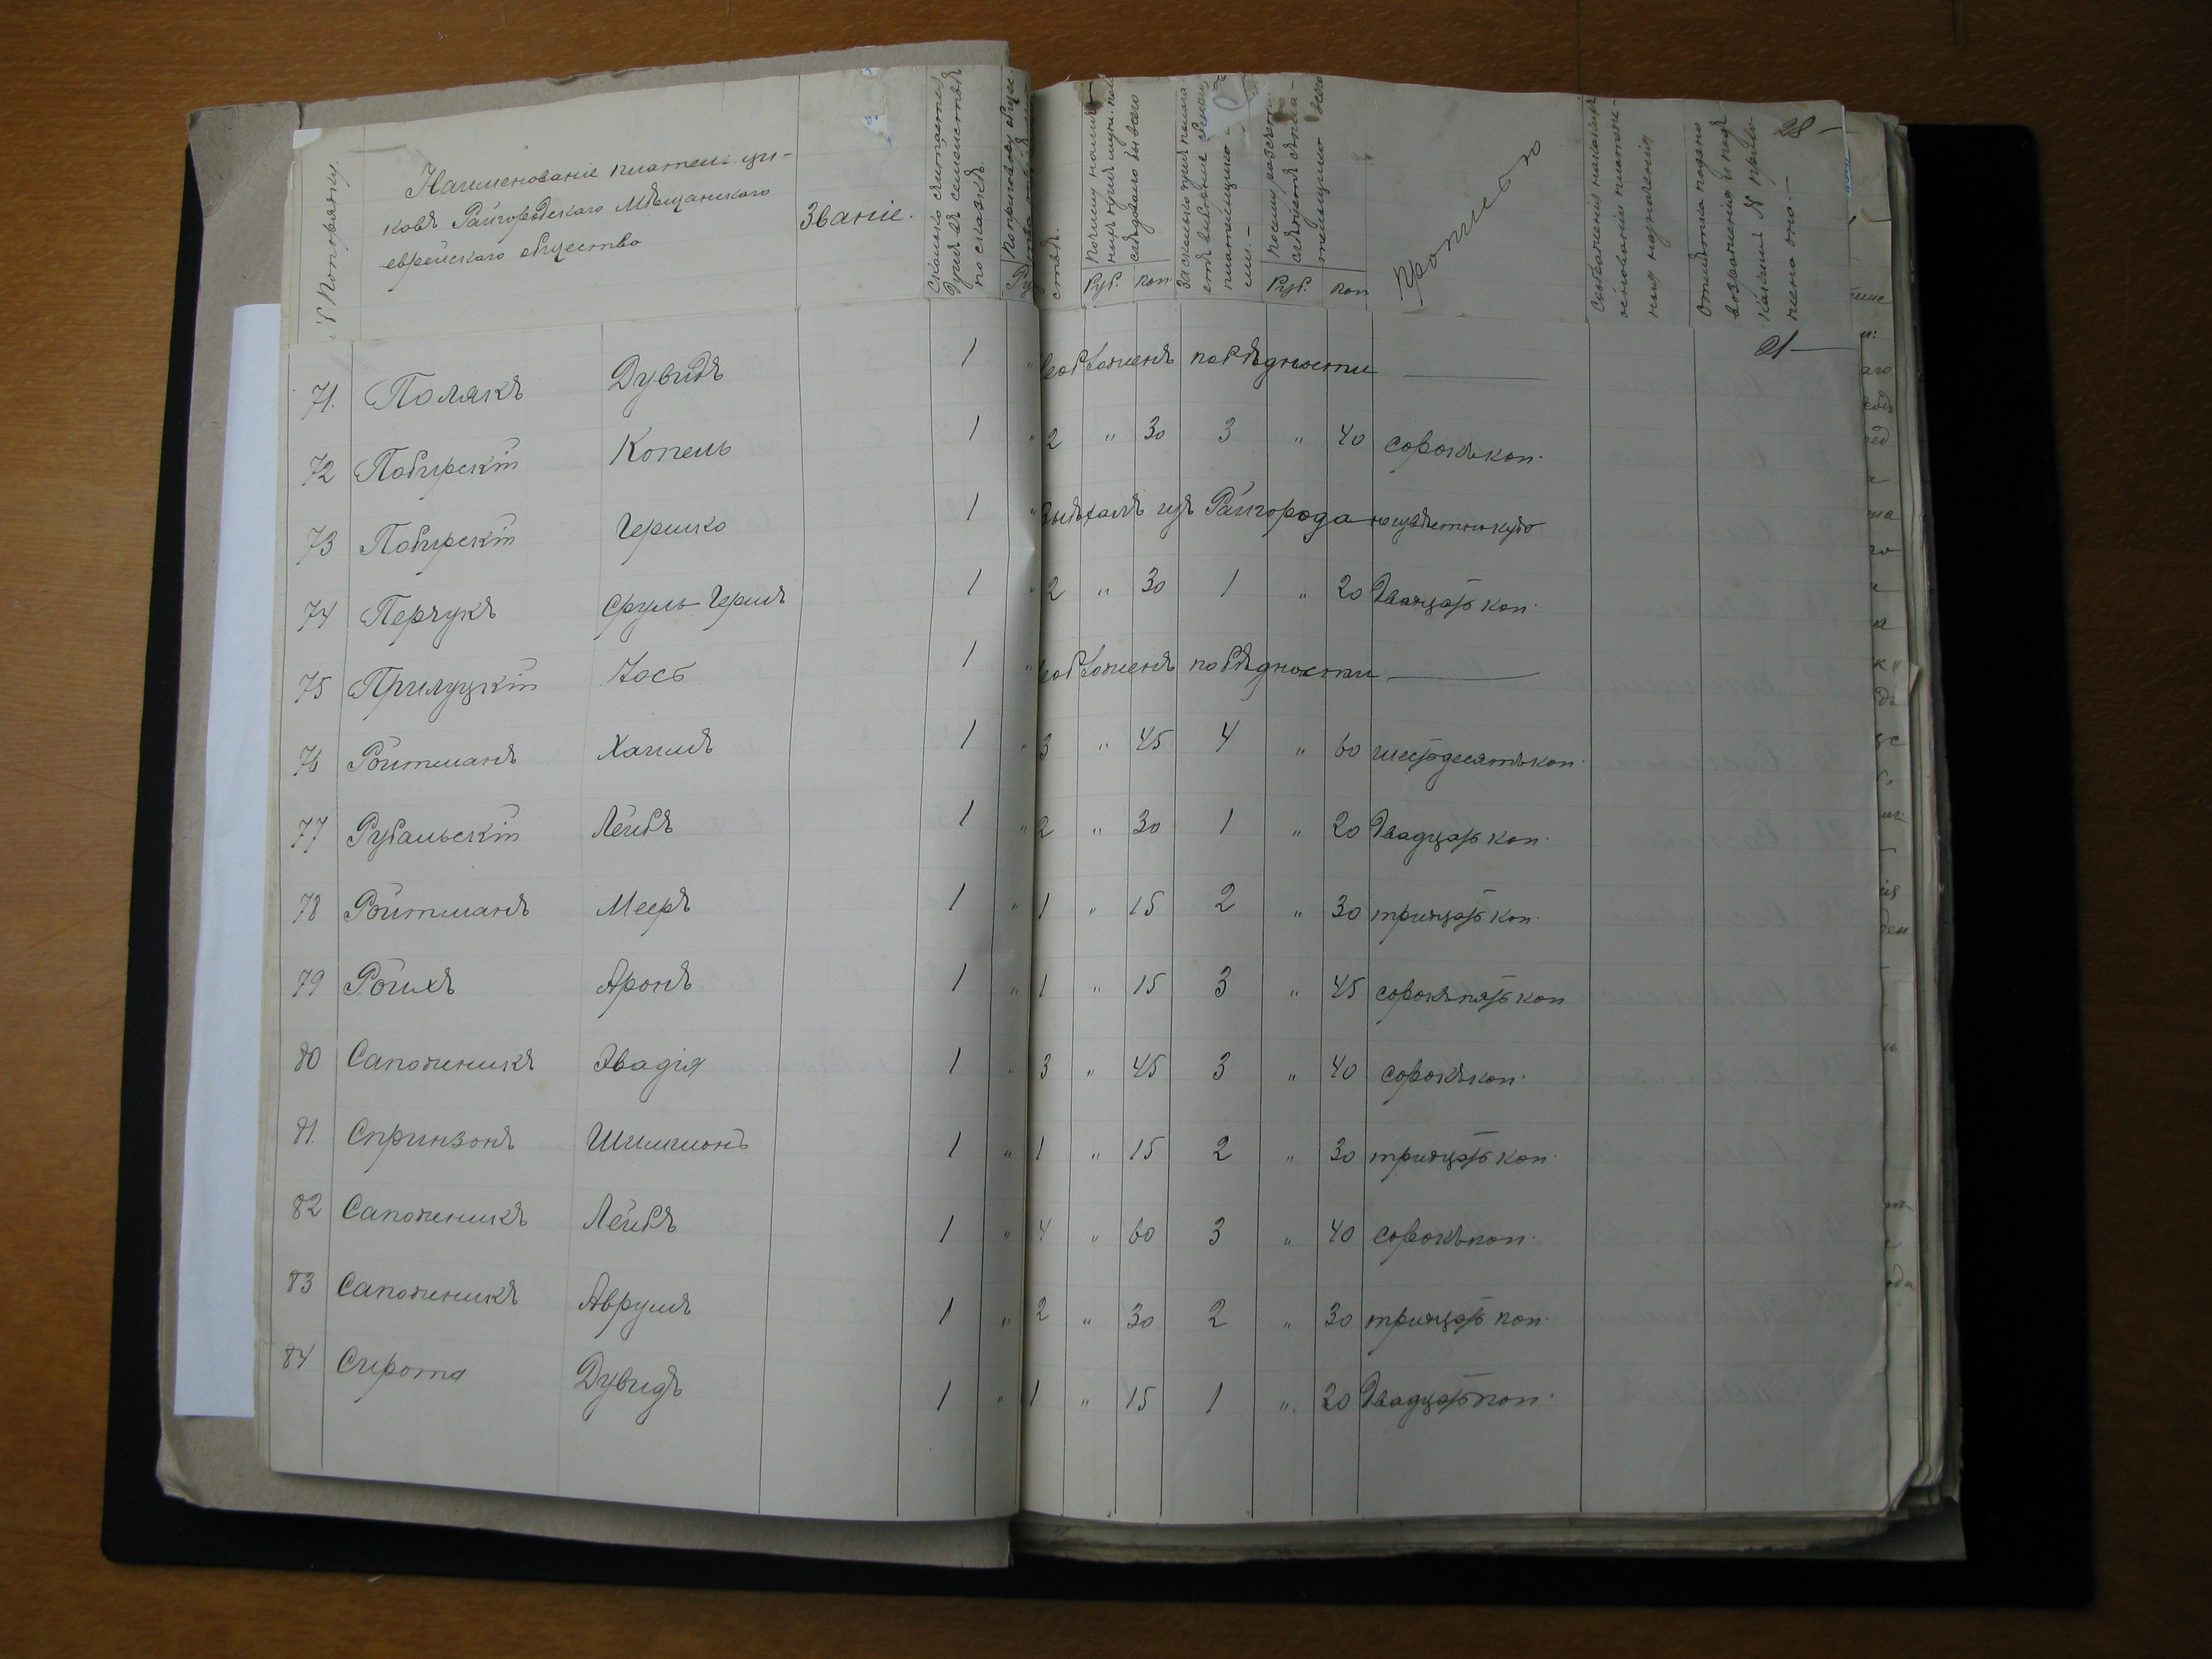 № по порядку.
Наименованіе плательщи-
ковъ Райгородскаго Мѣщанскаго
еврейскаго общества
Званіе.
Сколько считается
душъ въ семействѣ
по сказкѣ.
По приговору обще-
ства
Руб. Коп
Руб. Коп
Прописью
28 —
21 —
71. Полякъ Дувидъ 1 " не обложенъ по бѣдности —
72 Побирскій Копель 1 " 2 " 30 3 " 40 сорокъ коп.
73 Побирскій Гершко 1 " выѣхалъ изъ Райгорода неизвѣстно куда
74 Перчукъ Сруль Гершъ 1 " 2 " 30 1 " 20 Двадцать коп.
75 Прилуцкій Іось 1 " не обложенъ по бѣдности —
76 Ройтманъ Хаимъ 1 " 3 " 45 4 " 60 шестьдесятъ коп.
77 Рубальскій Лейбъ 1 " 2 " 30 1 " 20 Двадцать коп.
78 Ройтманъ Мееръ 1 " 1 " 15 2 " 30 тридцать коп.
79 Ройхъ Аронъ 1 " 1 " 15 3 " 45 сорокъ пять коп
80 Сапожникъ Овадія 1 " 3 " 45 3 " 40 сорокъ коп.
81. Спринзонъ Шимшонъ 1 " 1 " 15 2 " 30 тридцать коп.
82 Сапожникъ Лейбъ 1 " 4 " 60 3 " 40 сорокъ коп.
83 Сапожникъ Аврумъ 1 " 2 " 30 2 " 30 тридцать коп.
84 Сирота Дувидъ 1 " 1 " 15 1 " 20 Двадцать коп.